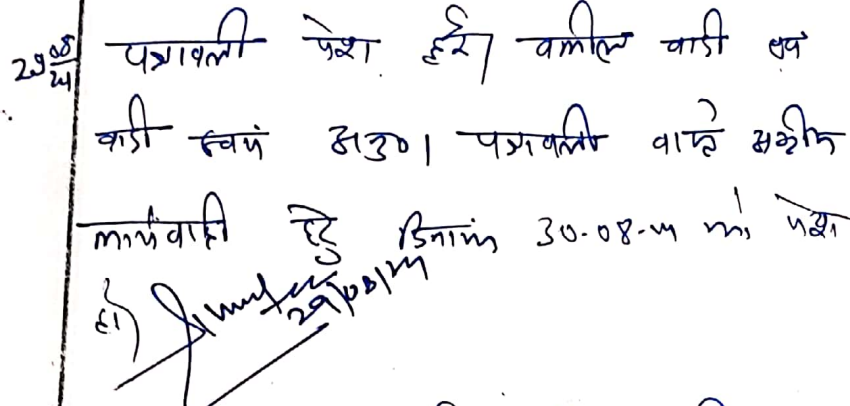 29/08/24 पत्रावली पेश हुई। वकील वादी एवं
वादी स्वयं अनु0। पत्रावली वास्ते
कार्यवाही हेतु दिनांक 30-08-24 को पेश
हो।
29/08/24